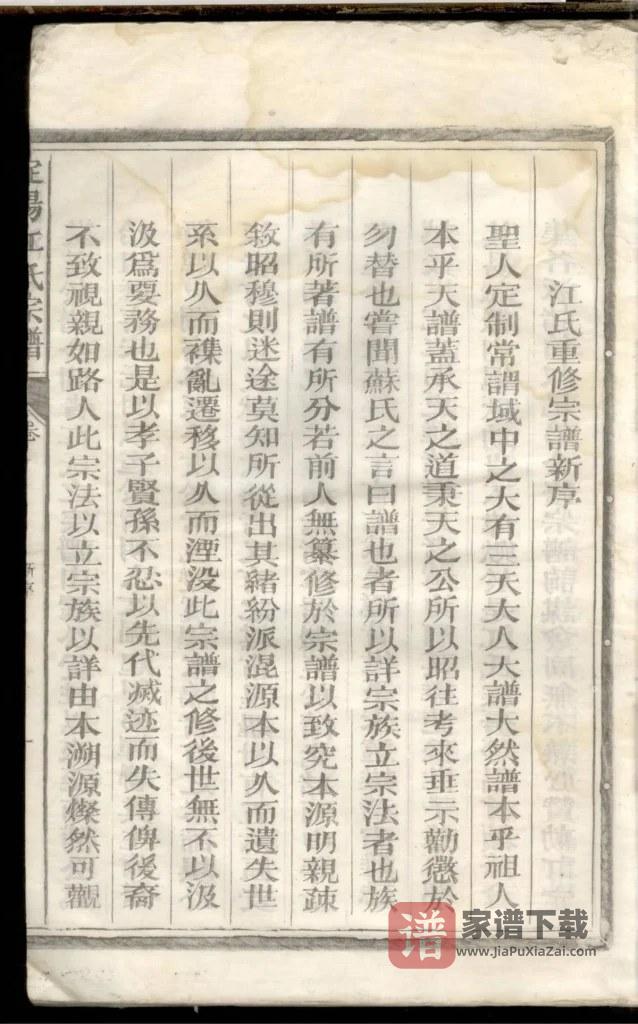 江氏重修宗譜新序
聖人定制常謂域中之大有三天大人大譜大然譜本乎祖人
本乎天譜蓋承天之道秉天之公所以昭往考來垂示勸懲於
勿替也嘗聞蘇氏之言曰譜也者所以詳宗族立宗法者也族
有所著譜有所分若前人無纂修於宗譜以致究本源明親疎
敘昭穆則迷途莫知所從出其緒紛派混源本以久而遺失世
系以久而襍亂遷移以久而湮没此宗譜之修後世無不以汲
汲爲要務也是以孝子賢孫不忍以先代滅迹而失傳俾後裔
不致視親如路人此宗法以立宗族以詳由本溯源燦然可觀
陽江氏宗譜
卷
新序
一
谱
家谱下载
www.JiaPuXiaZai.com